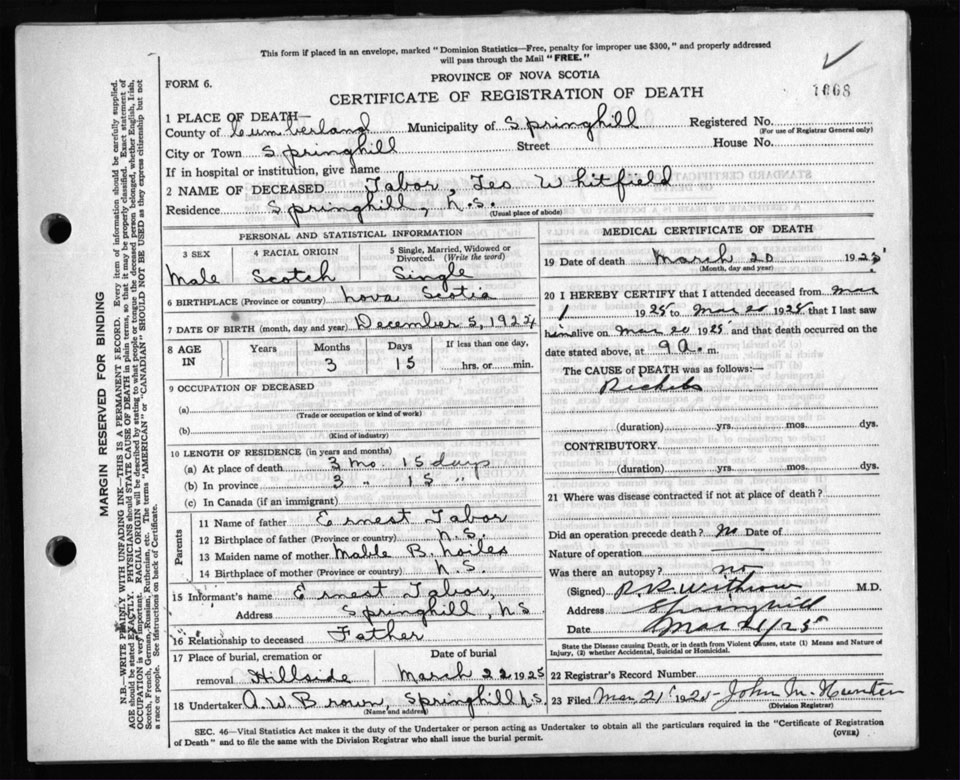 This form if placed in an envelope, marked "Dominion Statistics—Free, penalty for improper use $300," and properly addressed
will pass through the Mail "FREE."
PROVINCE OF NOVA SCOTIA
FORM 6.
1068
CERTIFICATE OF REGISTRATION OF DEATH
1 PLACE OF DEATH—
County of Cumberland Municipality of Springhill Registered No.
(For use of Registrar General only)
City or Town Springhill Street House No.
If in hospital or institution, give name
2 NAME OF DECEASED Tabor, Leo Whitfield
Residence Springhill, N.S.
(Usual place of abode)
PERSONAL AND STATISTICAL INFORMATION
3 SEX 4 RACIAL ORIGIN 5 Single, Married, Widowed or Divorced. (Write the word)
Male Scotch Single
6 BIRTHPLACE (Province or country) Nova Scotia
7 DATE OF BIRTH (month, day and year) December 5, 1924
8 AGE IN Years Months Days If less than one day,
3 15 hrs. or min.
9 OCCUPATION OF DECEASED
(a)
(Trade or occupation or kind of work)
(b)
(Kind of industry)
10 LENGTH OF RESIDENCE (in years and months)
(a) At place of death 3 Mo. 15 days
(b) In province 3 " 15 "
(c) In Canada (if an immigrant)
Parents
11 Name of father Ernest Tabor
12 Birthplace of father (Province or country) N.S.
13 Maiden name of mother Mable B. Noiles
14 Birthplace of mother (Province or country) N.S.
15 Informant's name Ernest Tabor,
Address Springhill, N.S.
16 Relationship to deceased Father
17 Place of burial, cremation or removal Hillside
Date of burial
March 22 1925
18 Undertaker A.W. Brown, Springhill N.S.
(Name and address)
MEDICAL CERTIFICATE OF DEATH
19 Date of death March 20 1925
(Month, day and year)
20 I HEREBY CERTIFY that I attended deceased from Mar
1 1925 to Mar 20 1925 that I last saw
him alive on Mar 20 1925 and that death occurred on
date stated above, at 9 a. m.
The CAUSE of DEATH was as follows:—
Rickets
(duration) yrs. mos. dys.
CONTRIBUTORY
(duration) yrs. mos. dys.
21 Where was disease contracted if not at place of death?
Did an operation precede death? No Date of
Nature of operation
Was there an autopsy? no
(Signed) R.R. Withrow M.D.
Address Springhill
Date Mar 21/25
State the Disease causing Death, or in death from Violent Causes, state (1) Means and Nature of
Injury, (2) whether Accidental, Suicidal or Homicidal.
22 Registrar's Record Number
23 Filed Mar. 21 1925 John M. Hunter
(Division Registrar)
SEC. 46—Vital Statistics Act makes it the duty of the Undertaker or person acting as Undertaker to obtain all the particulars required in the "Certificate of Registration
of Death" and to file the same with the Division Registrar who shall issue the burial permit.
(OVER)
MARGIN RESERVED FOR BINDING
N.B.—WRITE PLAINLY WITH UNFADING INK—THIS IS A PERMANENT RECORD. Every item of information should be carefully supplied.
AGE should be stated EXACTLY. PHYSICIANS should STATE CAUSE OF DEATH in plain terms, so that it may be properly classified. Exact statement of
OCCUPATION is very important. RACIAL ORIGIN will be described by stating to what people or tongue the deceased person belonged, whether English, Irish,
Scotch, French, German, Russian, Ruthenian, etc. The terms "AMERICAN" or "CANADIAN" SHOULD NOT BE USED as they express citizenship but not
a race or people. See instructions on back of Certificate.